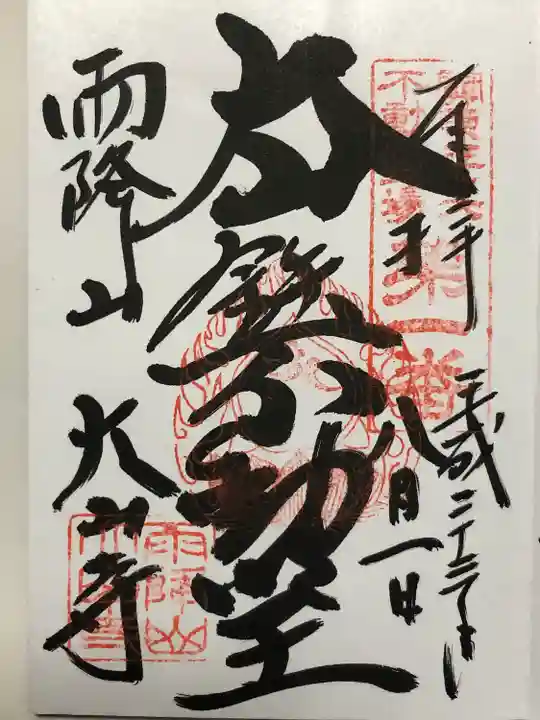 奉拝
平成二十三年
八月一日
大鉄不動堂
雨降山
大山寺
関東三十六
不動霊場
第一番
雨降山
大山寺